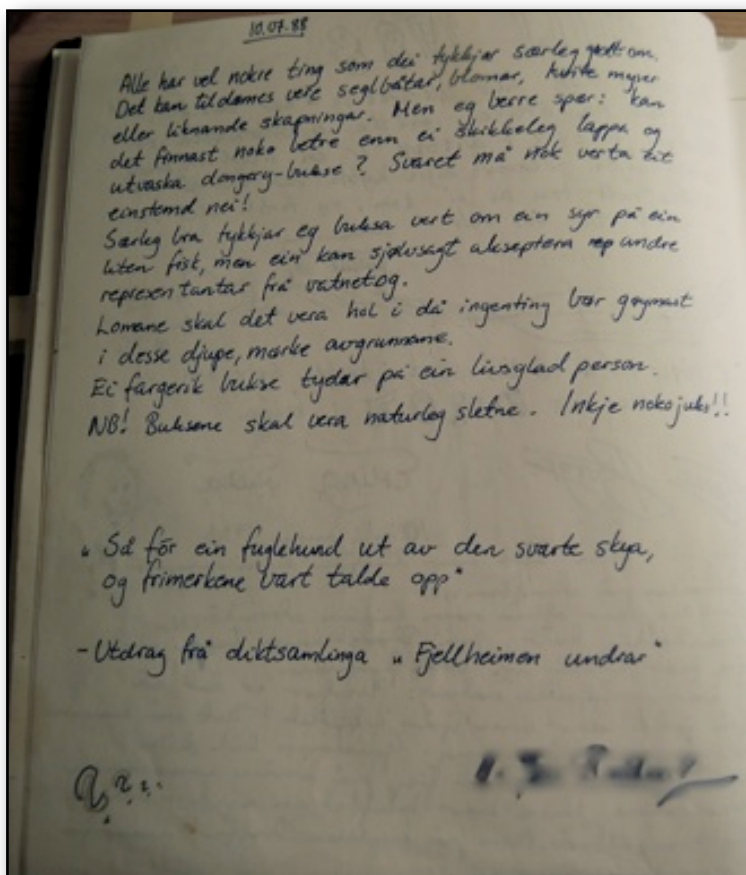 10.07.88
Alle har vel nokre ting som dei tykkjar særleg godt om.
Det kan tildømes vere seglbåtar, blomar, kvite myser
eller liknande skapningar. Men eg berre spør: kan
det finnast noko betre enn ei skikkeleg lappa og
utvaska dongery-bukse? Svaret må nok verta eit
einstemd nei!
Særleg bra tykkjar eg buksa vert om ein syr på ein
liten fisk, men ein kan sjølvsagt akseptera andre
representantar frå vatnet og.
Lomane skal det vera hol i då ingenting bør gøymast
i desse djupe, mørke avgrunnane.
Ei fargerik bukse tydar på ein livsglad person.
NB! Buksene skal vera naturleg slitne. Inkje noko juks!!
„Så fór ein fuglehund ut av den svarte skya,
og frimerkene vart talde opp"
- Utdrag frå diktsamlinga „Fjellheimen undrar"